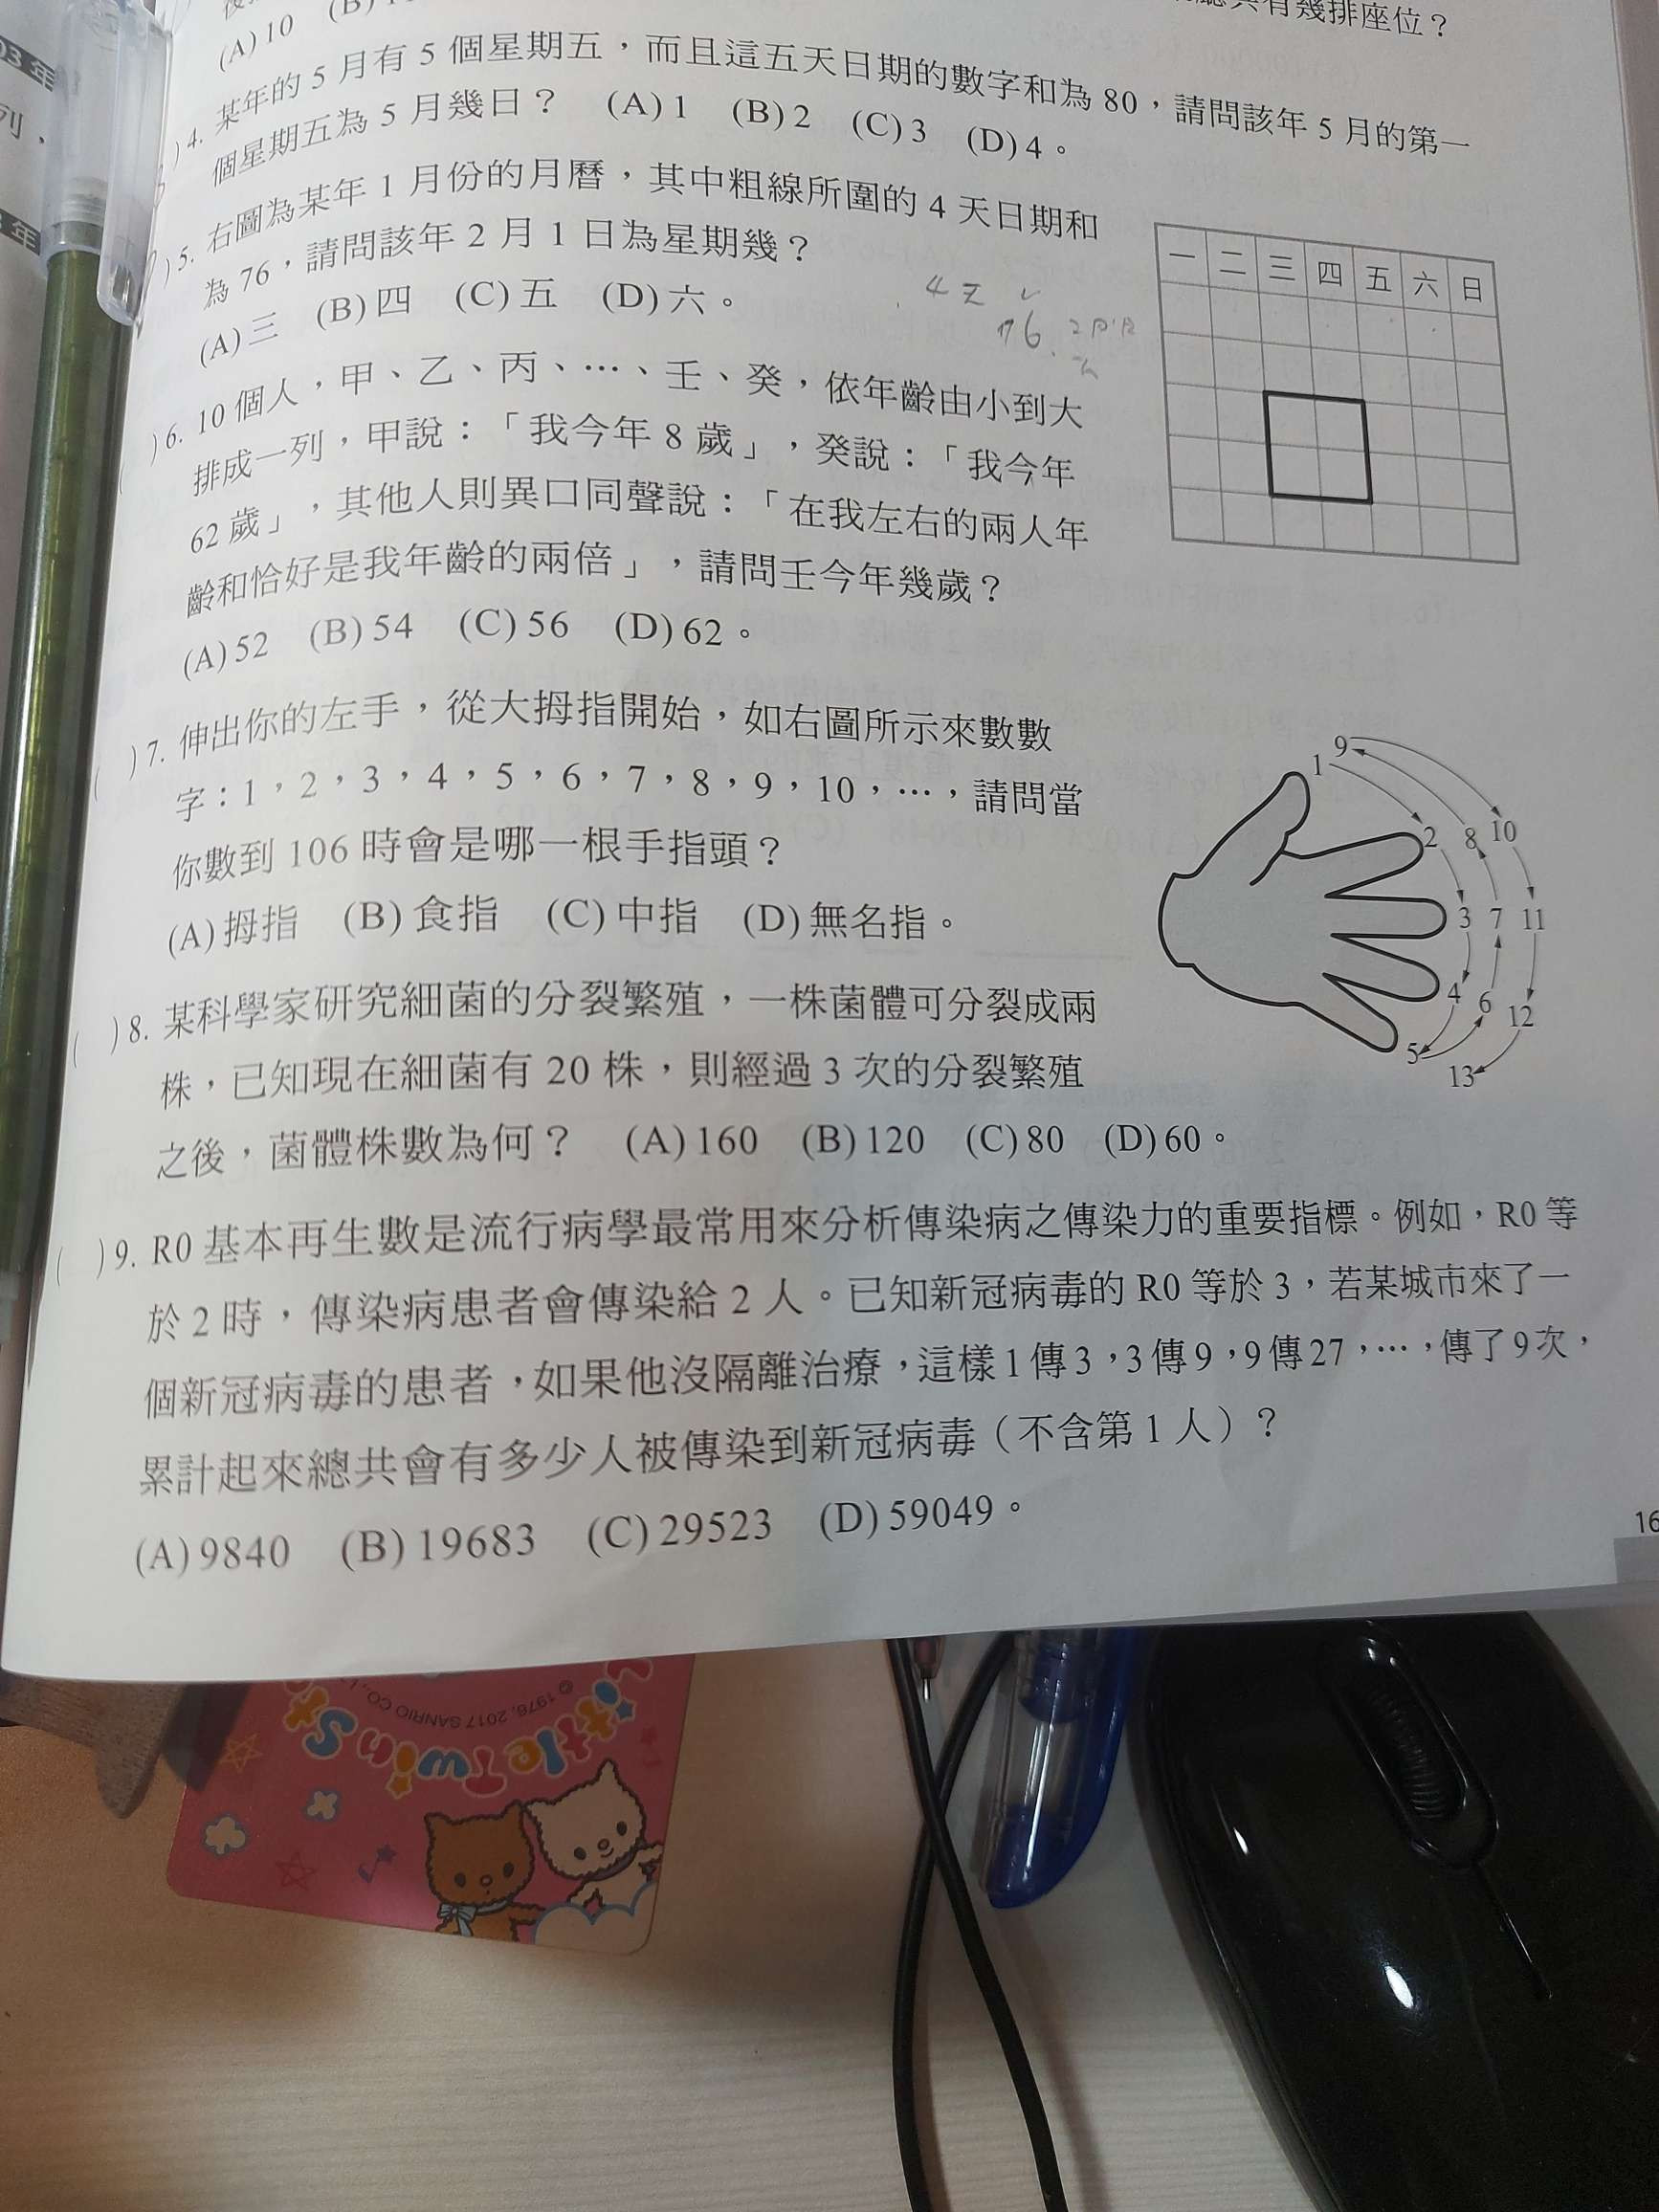 03 年
列,
年
(A) 10 (B)
共有幾排座位？
) 4. 某年的 5 月有 5 個星期五，而且這五天日期的數字和為 80，請問該年 5 月的第一
個星期五為 5 月幾日？ (A) 1 (B) 2 (C) 3 (D) 4。
) 5. 右圖為某年 1 月份的月曆，其中粗線所圍的 4 天日期和
為 76，請問該年 2 月 1 日為星期幾？
(A) 三 (B) 四 (C) 五 (D) 六。
4天
76
一 二 三 四 五 六 日
( ) 6. 10 個人，甲、乙、丙、…、壬、癸，依年齡由小到大
排成一列，甲說：「我今年 8 歲」，癸說：「我今年
62 歲」，其他人則異口同聲說：「在我左右的兩人年
齡和恰好是我年齡的兩倍」，請問壬今年幾歲？
(A) 52 (B) 54 (C) 56 (D) 62。
( ) 7. 伸出你的左手，從大拇指開始，如右圖所示來數數
字：1，2，3，4，5，6，7，8，9，10，…，請問當
你數到 106 時會是哪一根手指頭？
(A) 拇指 (B) 食指 (C) 中指 (D) 無名指。
1 9
2 8 10
3 7 11
4 6 12
5 13
( ) 8. 某科學家研究細菌的分裂繁殖，一株菌體可分裂成兩
株，已知現在細菌有 20 株，則經過 3 次的分裂繁殖
之後，菌體株數為何？ (A) 160 (B) 120 (C) 80 (D) 60。
( ) 9. R0 基本再生數是流行病學最常用來分析傳染病之傳染力的重要指標。例如，R0 等
於 2 時，傳染病患者會傳染給 2 人。已知新冠病毒的 R0 等於 3，若某城市來了一
個新冠病毒的患者，如果他沒隔離治療，這樣 1 傳 3，3 傳 9，9 傳 27，…，傳了 9 次，
累計起來總共會有多少人被傳染到新冠病毒（不含第 1 人）？
(A) 9840 (B) 19683 (C) 29523 (D) 59049。
16
© 1976, 2017 SANRIO CO., L
LittleTwinSt